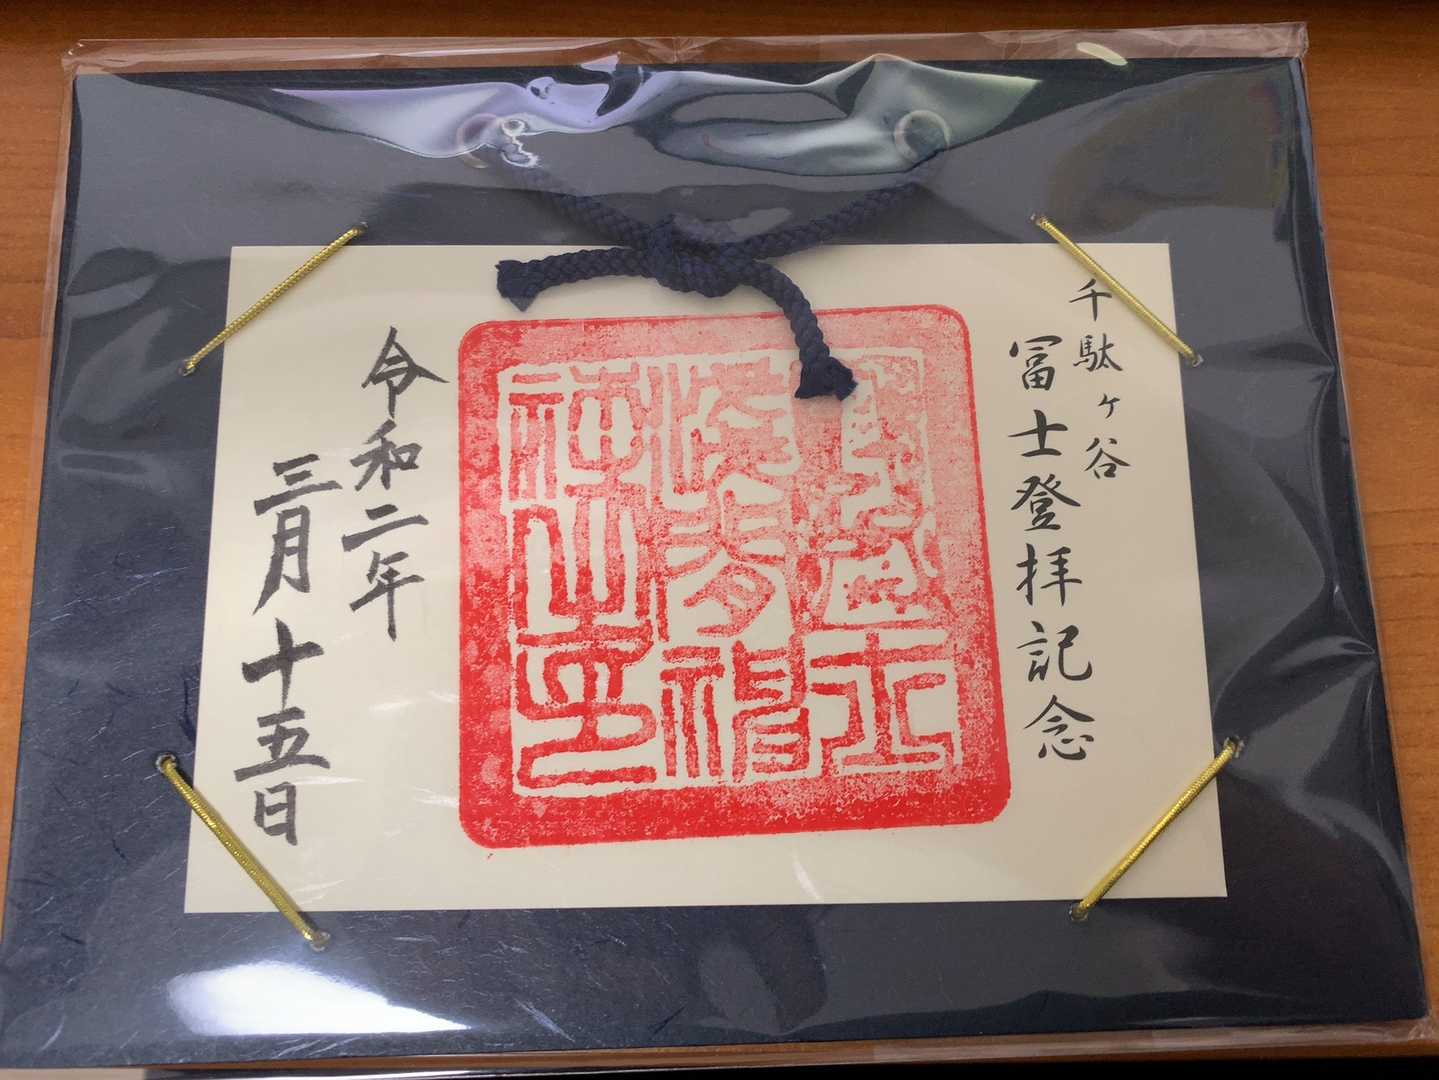 千駄ヶ谷
冨士登拝記念
令和二年
三月十五日